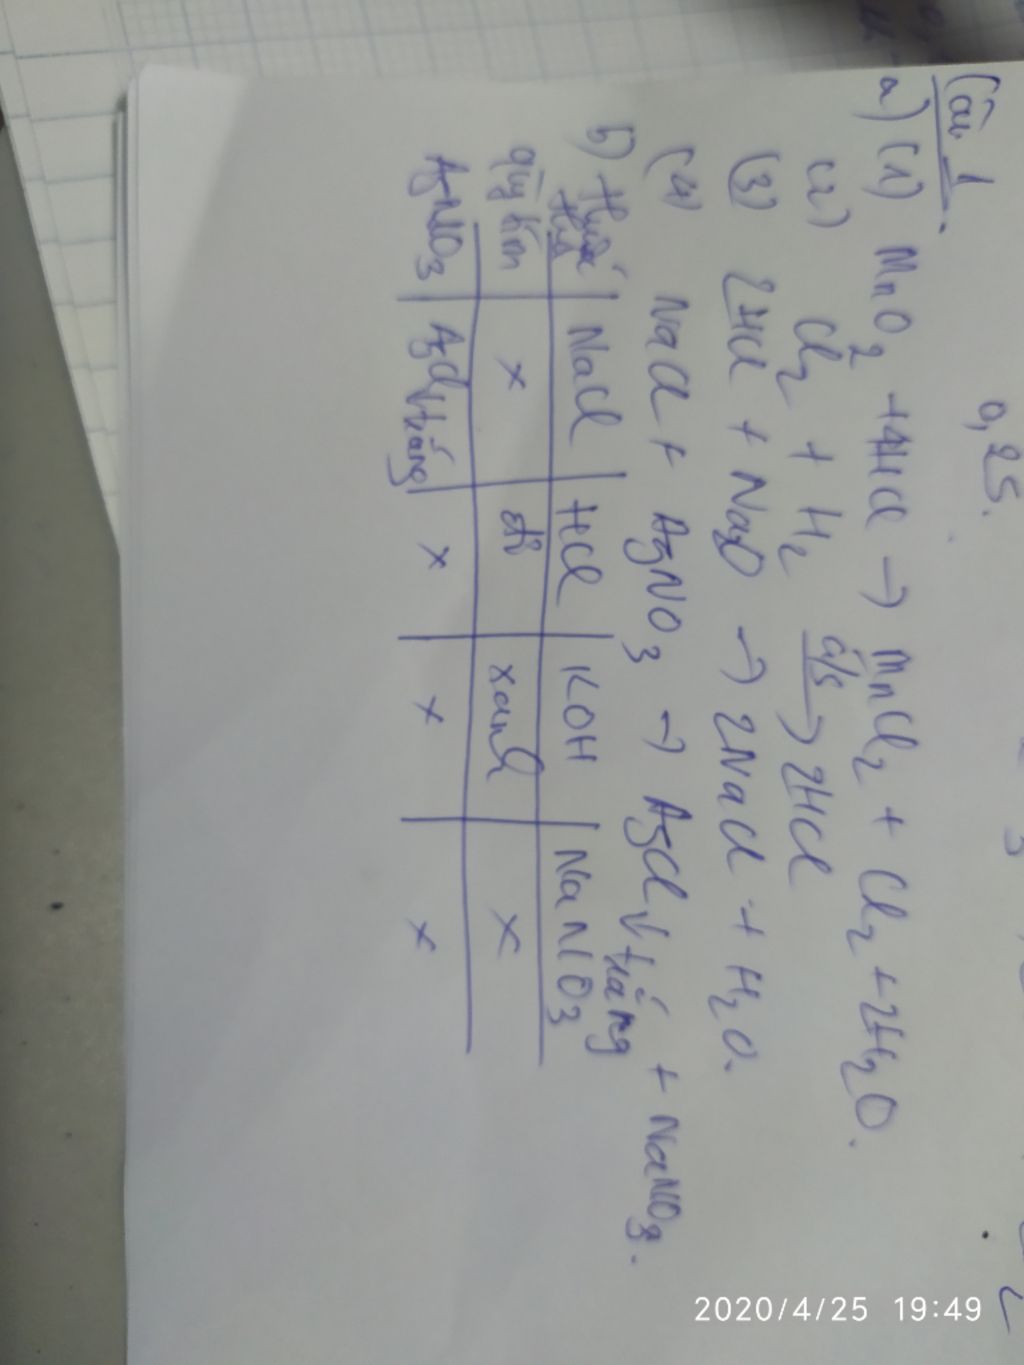 0,25.
Câu 1.
a) (1) MnO2 + 4HCl → MnCl2 + Cl2 + 2H2O.
(2) Cl2 + H2 a/s → 2HCl
(3) 2HCl + Na2O → 2NaCl + H2O.
(4) NaCl + AgNO3 → AgCl↓ trắng + NaNO3.
b) Thuốc thử NaCl HCl KOH NaNO3
quỳ tím x đỏ xanh x
AgNO3 AgCl↓ trắng x x x
2020/4/25 19:49